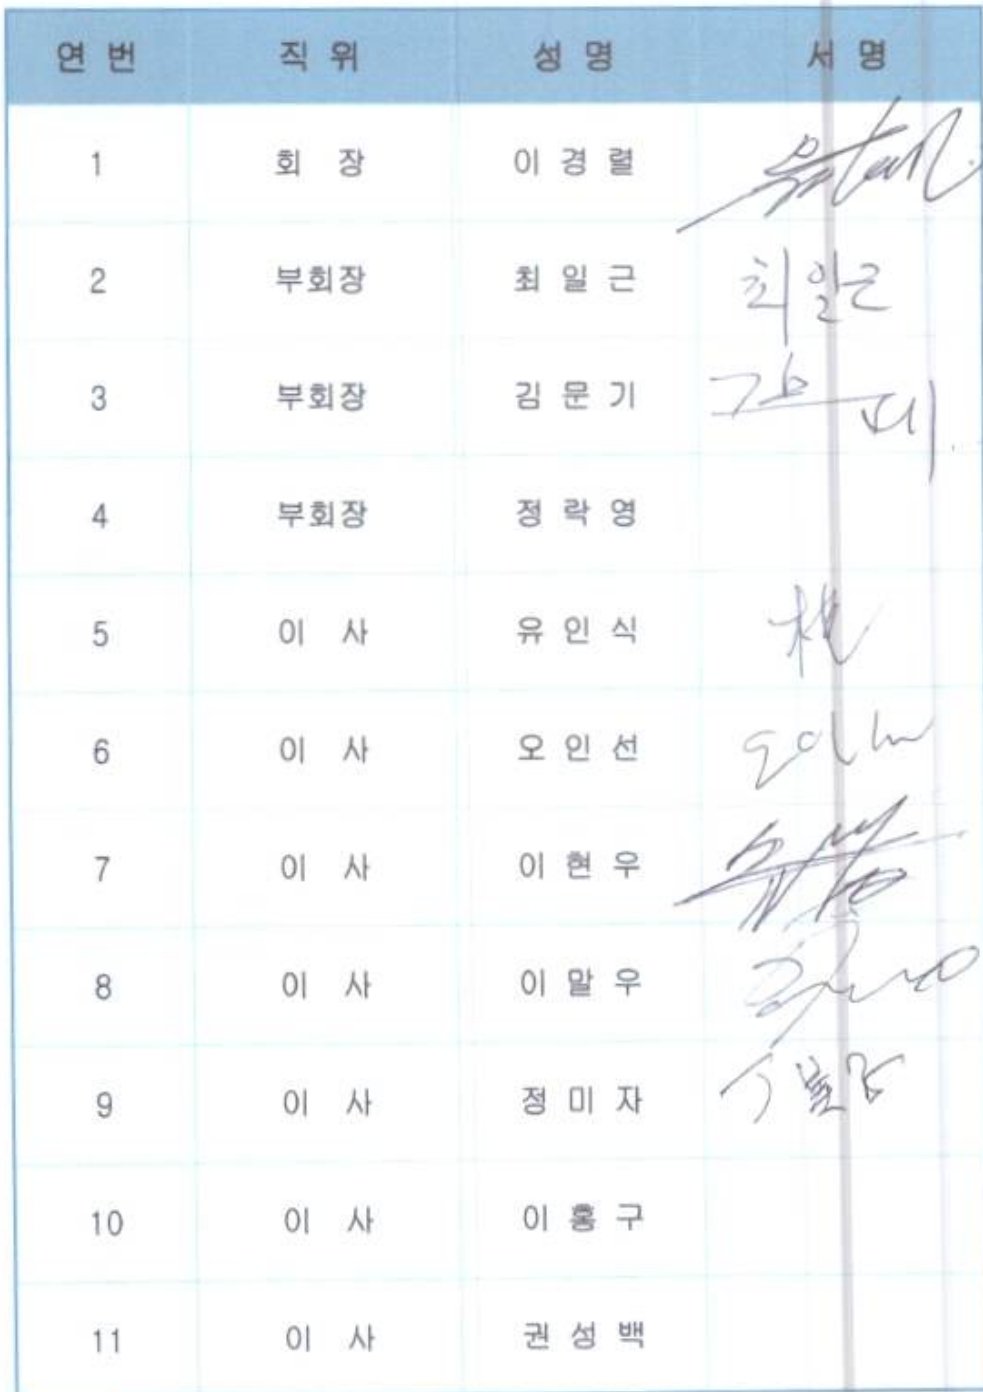 연번 직위 성명 서명
1 회 장 이경렬
2 부회장 최일근 최일근
3 부회장 김문기
4 부회장 정락영
5 이 사 유인식
6 이 사 오인선
7 이 사 이현우
8 이 사 이말우
9 이 사 정미자
10 이 사 이홍구
11 이 사 권성백